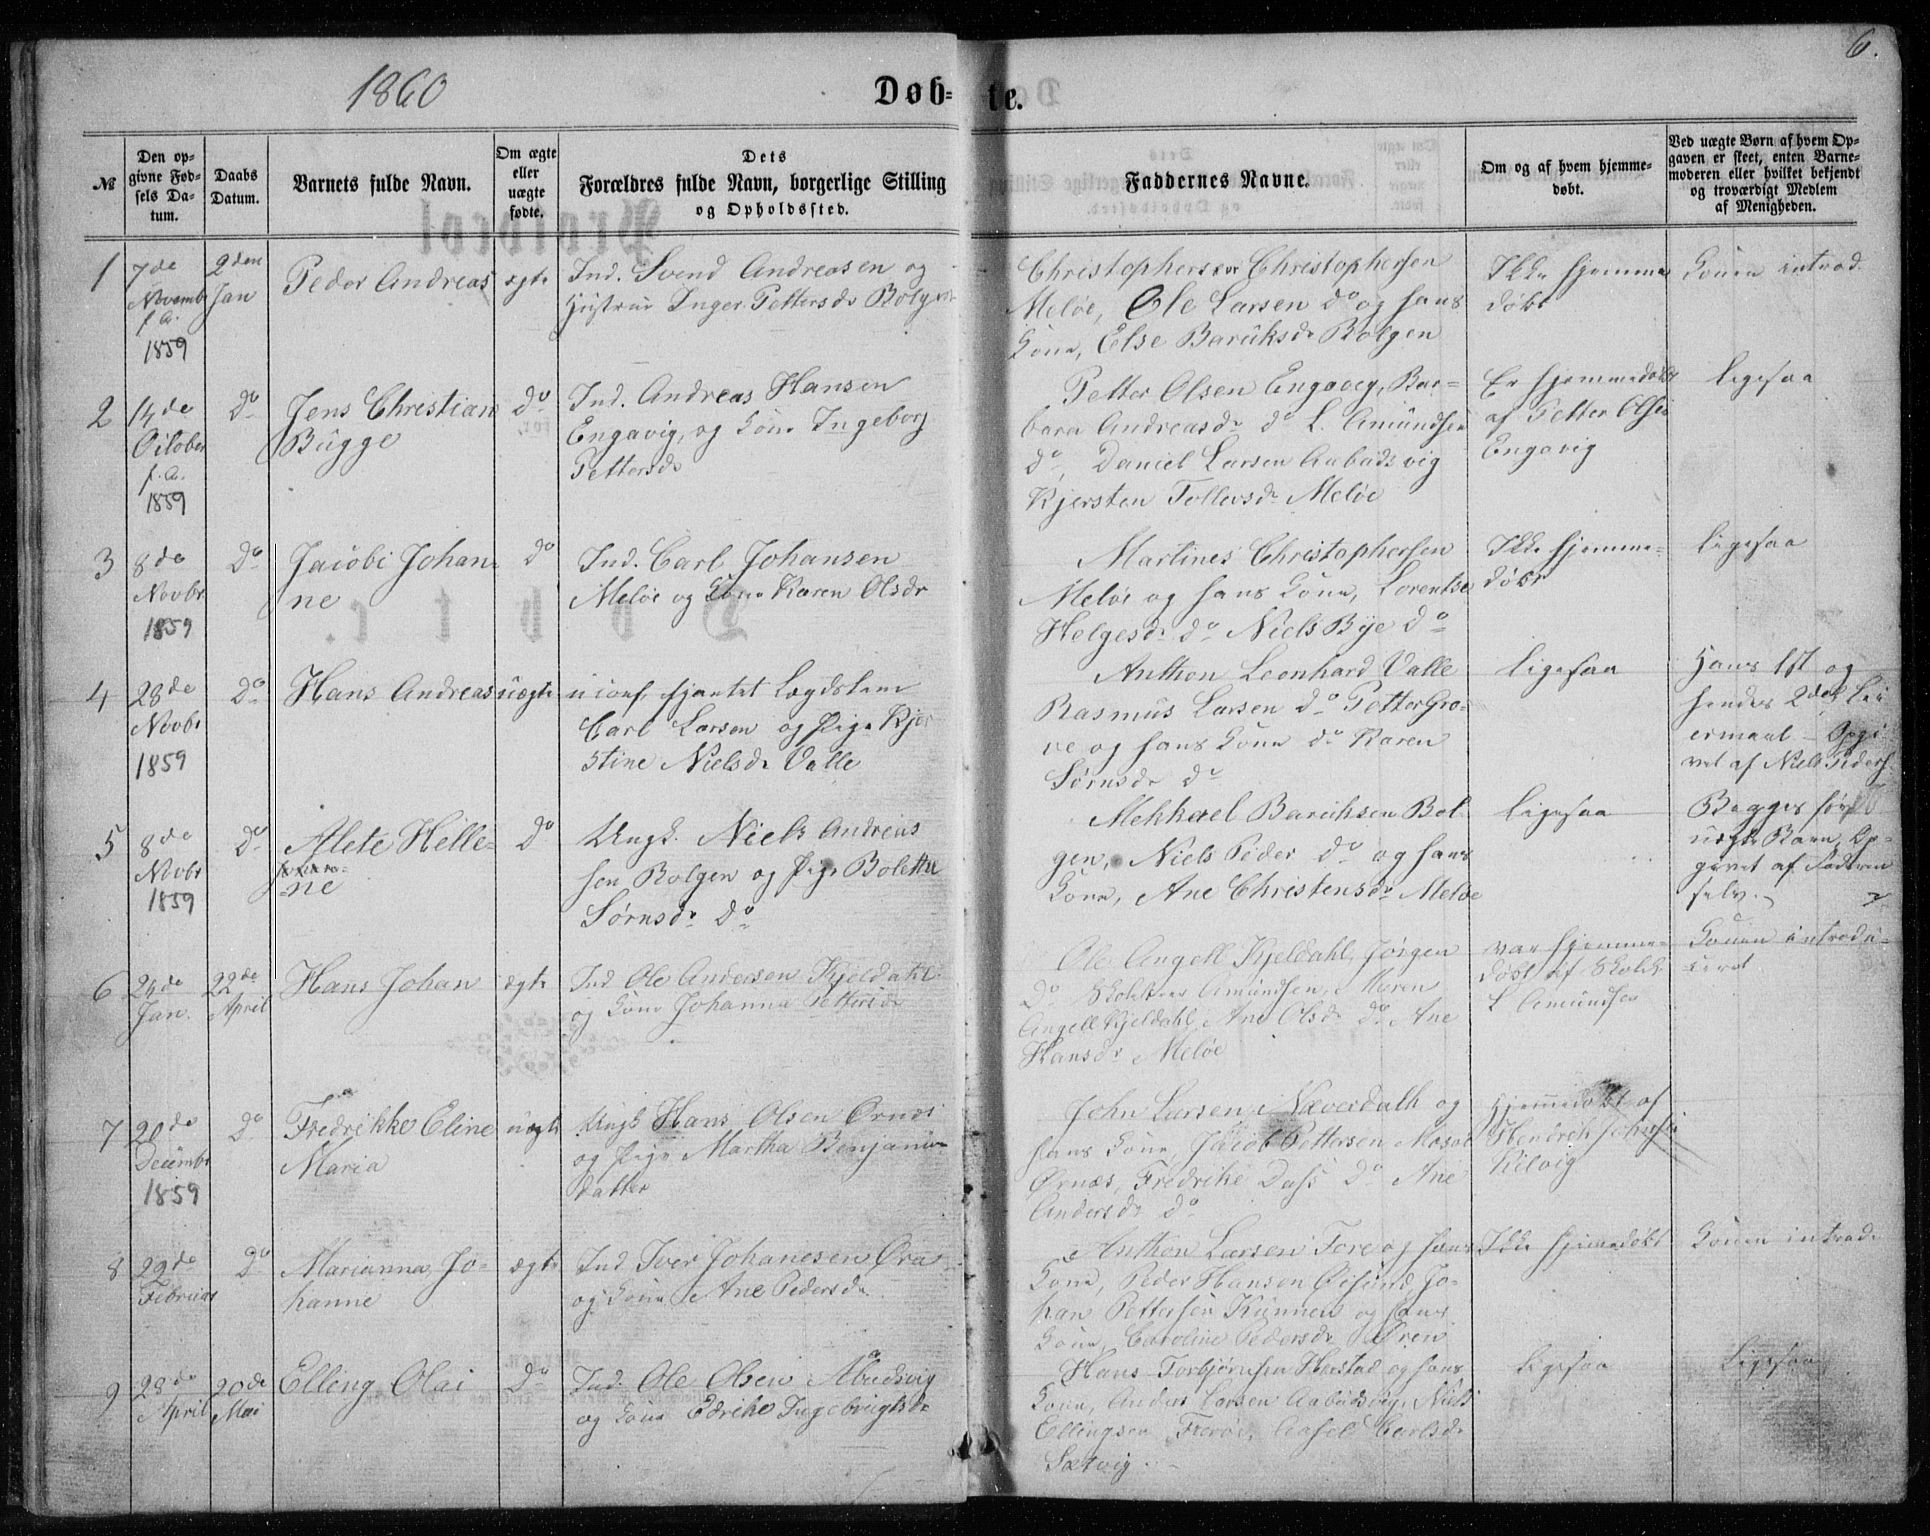 1860
Døb-
te.
6.
№
Den op-
givne Fød-
sels Da-
tum.
Daabs
Datum.
Barnets fulde Navn.
Om ægte
eller
uægte
fødte.
Dets
Forældres fulde Navn, borgerlige Stilling
og Opholdssted.
Faddernes Navne.
Om og af hvem hjemme-
døbt.
Ved uægte Børn af hvem Op-
gaven er skeet, enten Barne-
moderen eller hvilket bekjendt
og troværdigt Medlem
af Menigheden.
1
7de
Novembr
f. A.
1859
2den
Jan
Peder Andreas
ægte
Ind. Svend Andreasen og
Hustrue Inger Pettersdr Bolgen
Christophersen Christophersen
Meløe, Ole Larsen do og hans
Kone, Else Baruksdr Bolgen
Ikke hjemme
døbt
Konen introd.
2
14de
October
f. A.
1859
Do
Jens Christian
Bugge
Do
Ind. Andreas Hansen
Engavig, og Kone Ingeborg
Pettersdr
Petter Olsen Engavig, Bar-
bara Andreasdr do L. Amundsen
do, Daniel Larsen Aabudsvig
Kjersten Tollevsdr Meløe
Er hjemmedøbt
af Petter Olsen
Engavig
Ligesaa
3
8de
Novbr
1859
Do
Jacobi Johan-
ne
Do
Ind. Carl Johansen
Meløe og Kone Karen Olsdr
Martines Christophersen
Meløe og hans Kone, Lorentse
Helgesdr do Niels Bye do
Ikke hjemme-
døbt
Ligesaa
4
28de
Novbr
1859
Do
Hans Andreas
uægte
uconf. tjenende Lægdslem
Carl Larsen og Pige Kjer
stine Nielsdr Valle
Anthon Leonhard Valle
Rasmus Larsen do Petter Gro-
ve og hans Kone do Karen
Sørnsdr do
Ligesaa
Hans 1st og
hendes 2det Lei
ermaal - Opgi
vet af Niels Peders.
5
8de
Novbr
1859
Do
Alete Helle-
ne
Do
Ungk. Niels Andreas
sen Bolgen og Pige Bolette
Sørnsdr do
Mekkael Baruksen Bol
gen, Niels Peder do og hans
Kone, Ane Christensdr Meløe
Ligesaa
Begges første
uægte Barn, Op-
givet af Faderen
selv.
6
24de
Jan.
22de
April
Hans Johan
ægte
Ind Ole Andersen Kjeldahl
og Kone Johanna Pettersdr
Ole Angell Kjeldahl, Jørgen
Do Amundsen, Maren
Angell Kjeldahl, Ane Olsdr do Ane
Hansdr Meløe
var hjemme-
døbt af Skolel.
L Amundsen
Konen introdu-
ceret
7
20de
Decembr
1859
Do
Fredrikke Eline
Maria
uægte
Ungk Hans Olsen Ørnæs
og Pige Martha Benjamin
datter
John Larsen, Næverdalh og
hans Kone, Jacob Pettersen Mosvol
Ørnæs, Fredrike Dass do Ane
Andersdr do
Hjemmedøbt af
Hendrik Johnsen
Kilvig
8
29de
Februar
Do
Marianna Jo-
hanne
ægte
Ind Iver Johanesen Øra
og Kone Ane Pedersdr
Anthon Larsen Fore og hans
Kone, Peder Hansen Øisund, Jo-
han Pettersen Kunnen og hans
Kone, Caroline Pedersdr Øren
Ikke hjemedøbt
Konen introd.
9
28de
April
20de
Mai
Elling Olai
Do
Ind. Ole Olsen Abudsvig
og Kone Edrike Ingebrigtsdr
Hans Torbjørnsen Havstad og hans
Kone, Anders Larsen Aabudsvig, Niels
Ellingsen Fterøe, Carlsdr
Sætvig
Ligesaa
Ligesaa